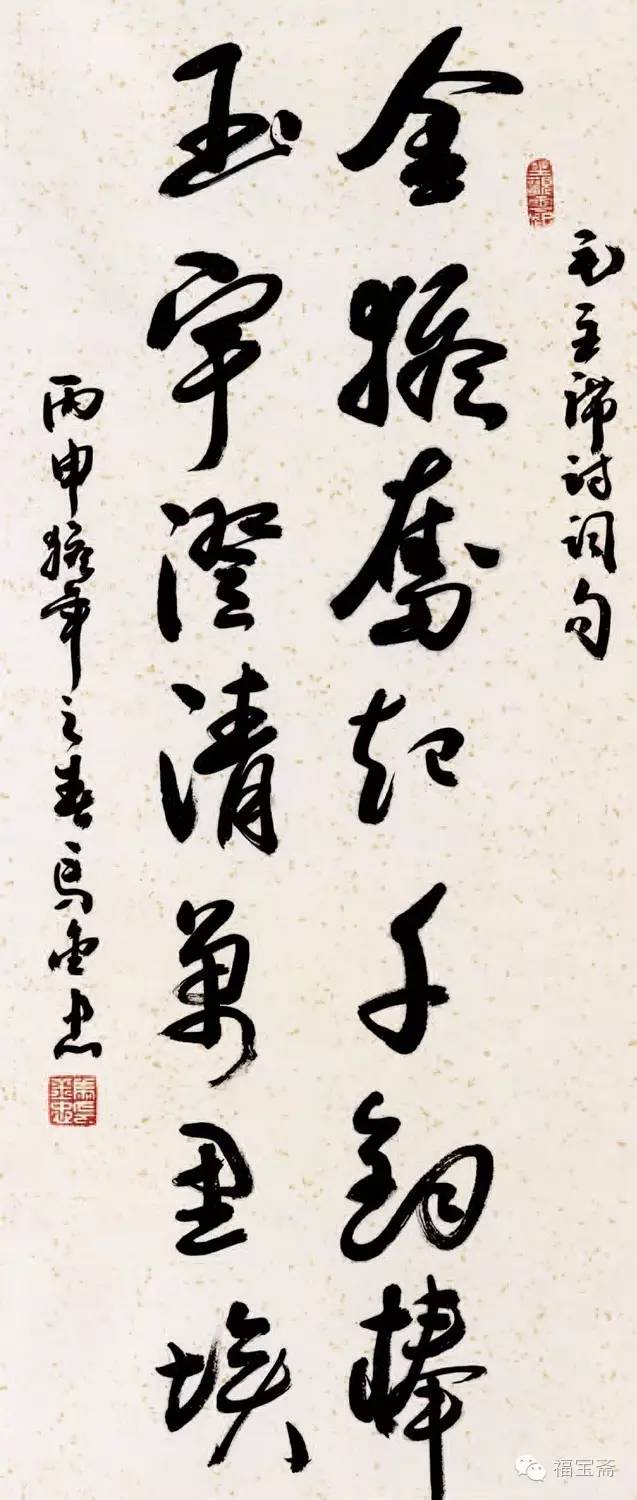 毛主席诗词句
金猴奮起千鈞棒
玉宇澄清萬里埃
丙申猴年之春马金忠
福宝斋